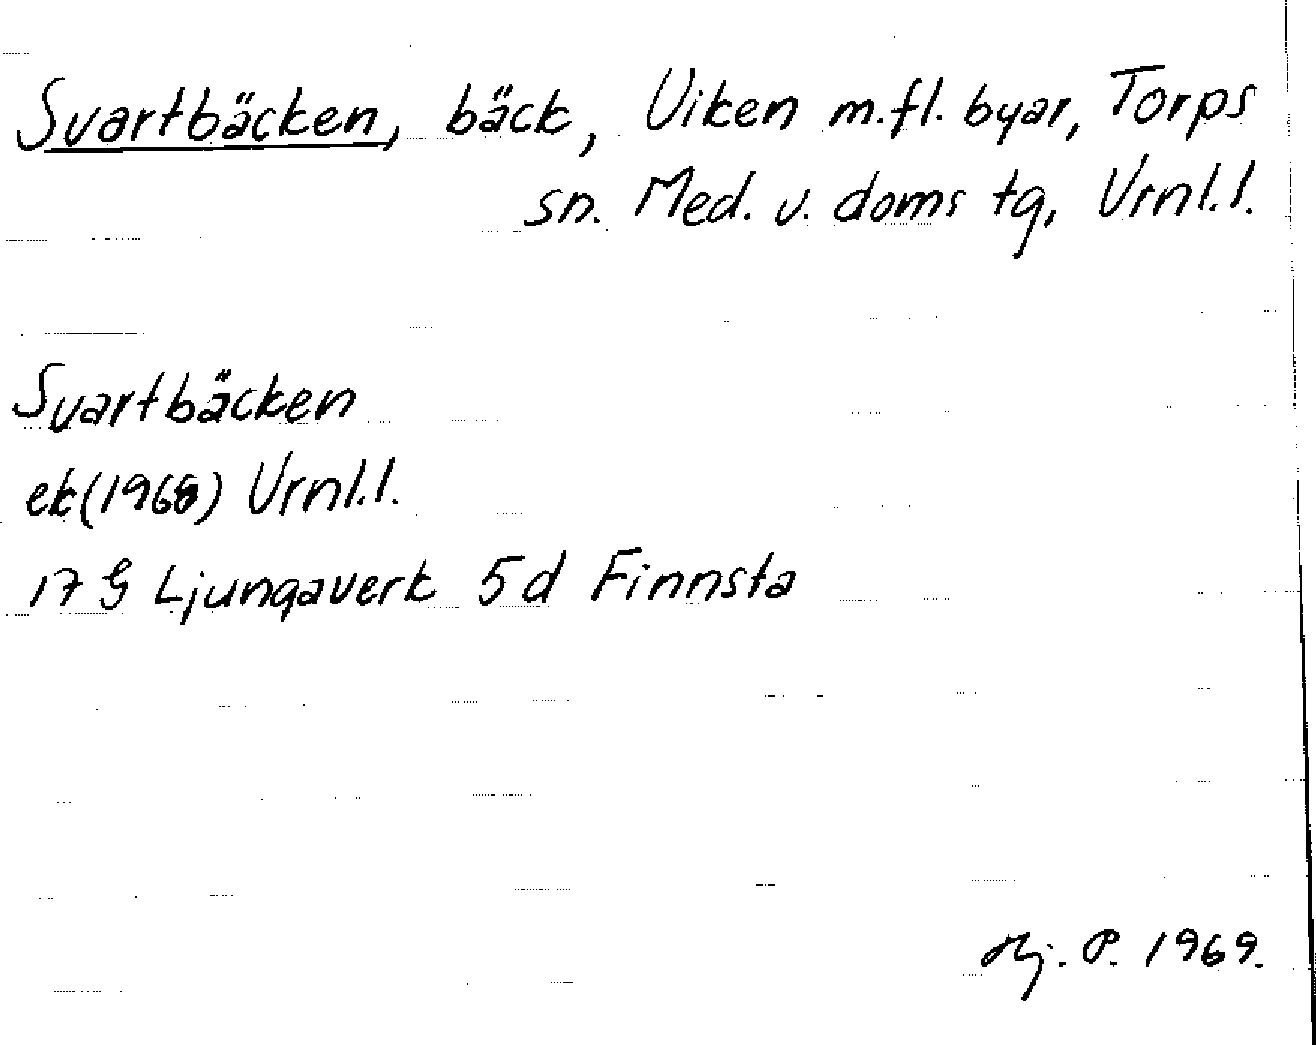 Svartbäcken, bäck, Viken m.fl. byar, Torps
sn. Med. v. doms tg, Vrnl.l.
Svartbäcken
ek(1968) Vrnl.l.
17 G Ljungaverk 5d Finnsta
Hj. P. 1969.